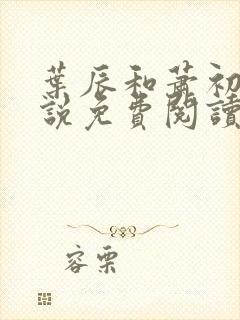 葉辰和蕭初
說免費閱讀
容栗